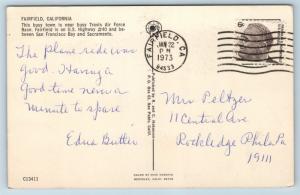 FAIRFIELD, CALIFORNIA
This busy town is near busy Travis Air Force
Base. Fairfield is on U.S. Highway #40 and be-
tween San Francisco Bay and Sacramento.
The plane ride was
Good. Having a
Good time never a
minute to spare
Edna Butler
C13411
FAIRFIELD CA
JAN 22
PM
1973
94533
6c
Mrs Peltzer
11 Central Ave
Rockledge Phila Pa
19111